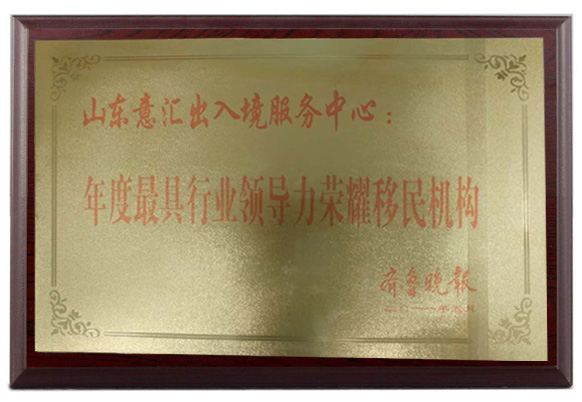 山东意汇出入境服务中心：
年度最具行业领导力荣耀移民机构
齐鲁晚报
二〇一一年五月